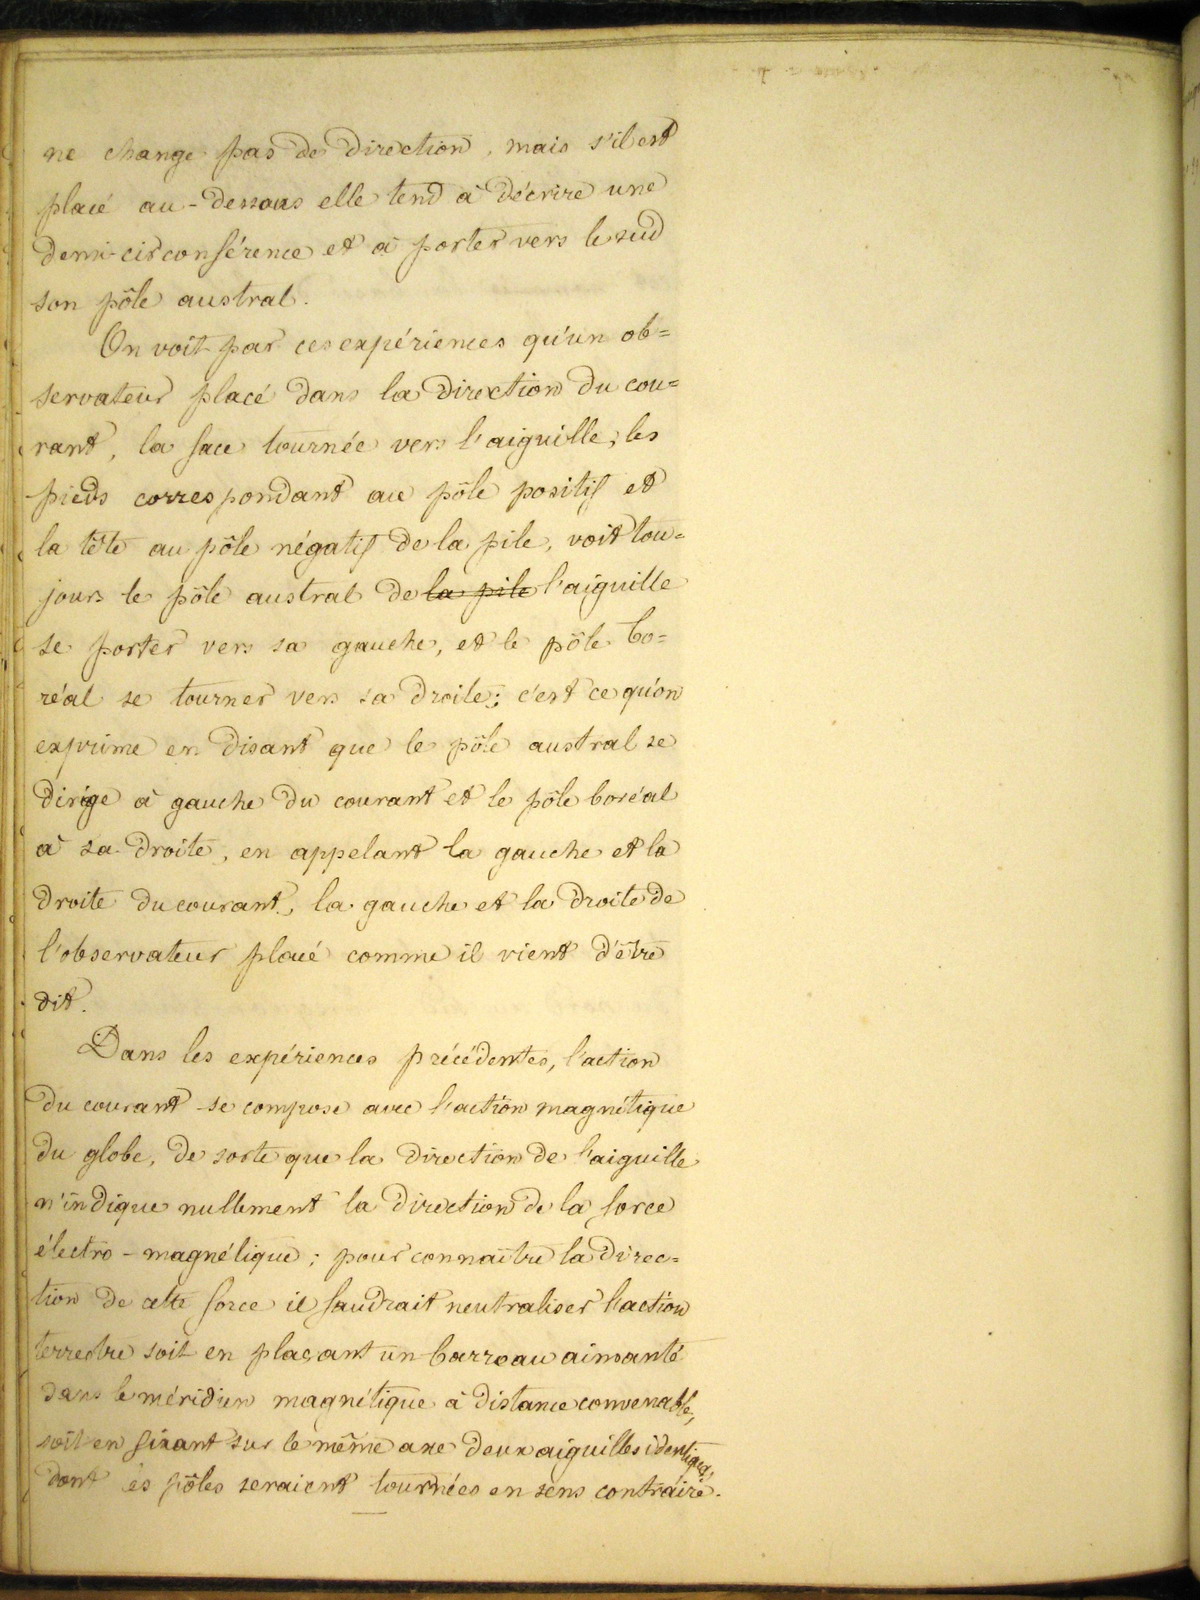 ne change pas de direction, mais s'il est
placé au-dessous elle tend à décrire une
demi-circonférence et à porter vers le sud
son pôle austral.
On voit par ces expériences qu'un ob=
servateur placé dans la direction du cou=
rant, la face tournée vers l'aiguille, les
pieds correspondant au pôle positif et
la tête au pôle négatif de la pile, voit tou=
jours le pôle austral de la pile l'aiguille
se porter vers sa gauche, et le pôle bo=
réal se tourner vers sa droite; c'est ce qu'on
exprime en disant que le pôle austral se
dirige à gauche du courant et le pôle boréal
à sa droite, en appelant la gauche et la
droite du courant, la gauche et la droite de
l'observateur placé comme il vient d'être
dit.
Dans les expériences précédentes, l'action
du courant se compose avec l'action magnétique
du globe, de sorte que la direction de l'aiguille
n'indique nullement la direction de la force
électro-magnétique; pour connaître la direc=
tion de cette force il faudrait neutraliser l'action
terrestre soit en plaçant un barreau aimanté
dans le méridien magnétique à distance convenable,
soit en fixant sur le même axe deux aiguilles identiques,
dont es pôles seraient tournées en sens contraire.